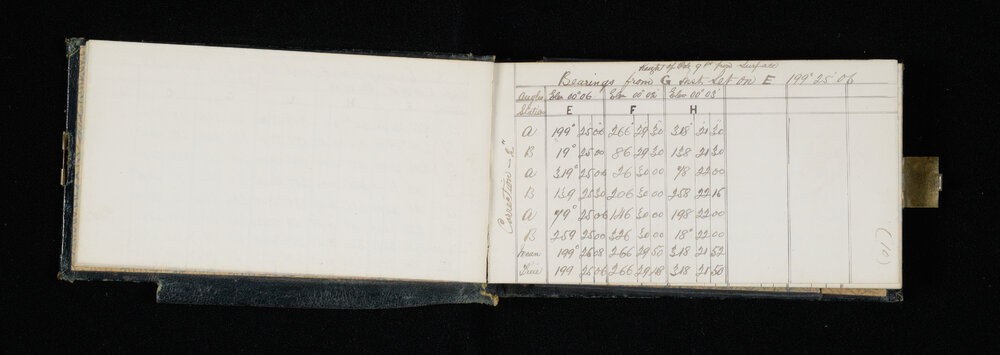 Height of Obj. 9 ft from Surface
Bearings from G Inst. Set on E 199° 25' 06
Angles Elev 00° 06 Elev 00° 02 Elev 00° 03'
Station E F H
A 199° 25 00 266° 29 30 318 21 30
B 19° 25 00 86 29 30 138 21 30
A 319° 25 00 26 30 00 78 22 00
B 139 25 30 206 30 00 258 22 15
A 79° 25 00 146 30 00 198 22 00
B 259 25 00 326 30 00 18° 22 00
Mean 199° 25 08 266 29 50 318 21 52
True 199 25 06 266 29 48 318 21 50
Correction - 2"
(10)